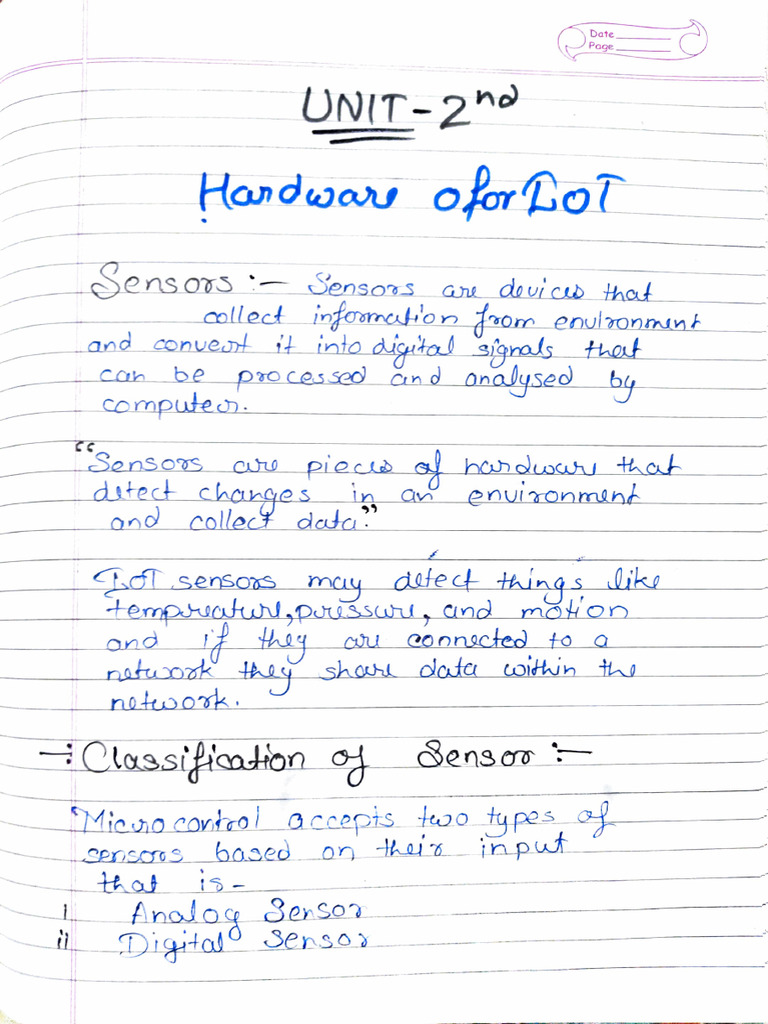 Date
Page
UNIT-2nd
Hardware ofor IoT
Sensors :- Sensors are devices that
collect information from environment
and convert it into digital signals that
can be processed and analysed by
computer.
"Sensors are pieces of hardware that
detect changes in an environment
and collect data."
IoT sensors may detect things like
temperature, pressure, and motion
and if they are connected to a
network they share data within the
network.
-: Classification of Sensor :-
Microcontrol accepts two types of
sensors based on their input
that is-
i Analog Sensor
ii Digital Sensor